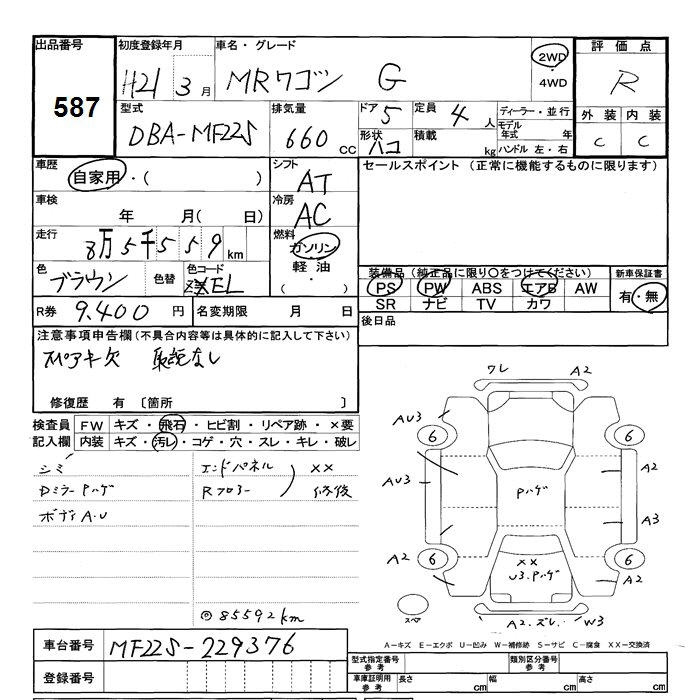 出品番号 初度登録年月 車名・グレード 評価点
587 H21 3月 MRワゴン G 2WD・4WD R
型式 排気量 ドア 5 定員 4人 ディーラー・並行 外装 内装
DBA-MF22S 660 cc 形状 ハコ 積載 kg モデル年式 年 C C
ハンドル 左・右
車歴 自家用・( ) シフト AT セールスポイント (正常に機能するものに限ります)
車検 年 月( 日) 冷房 AC
走行 8万5千559km 燃料 ガソリン・軽油・( )
色 ブラウン 色替 色コード ZEL
装備品(純正品に限り○をつけてください) 新車保証書
PS PW ABS エアB AW 有・無
SR ナビ TV カワ
R券 9.400円 名変期限 月 日 後日品
注意事項申告欄(不具合内容等は具体的に記入して下さい)
スペアキ欠 取説なし
修復歴 有 〔箇所 〕
検査員 FW キズ・飛石・ヒビ割・リペア跡・×要
記入欄 内装 キズ・汚レ・コゲ・穴・スレ・キレ・破レ
シミ エンドパネル XX
Dミラー Pハゲ Rフロアー 修復
ボディ A.U
◎85592km
ワレ A2
AU3 6 6
AU3 Pハゲ A2
A3
A2 6 XX 6
U3.Pハゲ A2
スペア A2.ズレ. W3
車台番号 MF22S-229376
A−キズ E−エクボ U−凹み W−補修跡 S−サビ C−腐食 XX−交換済
登録番号 型式指定番号 参考 類別区分番号 参考
車庫証明用 参考 長さ cm 幅 cm 高さ cm